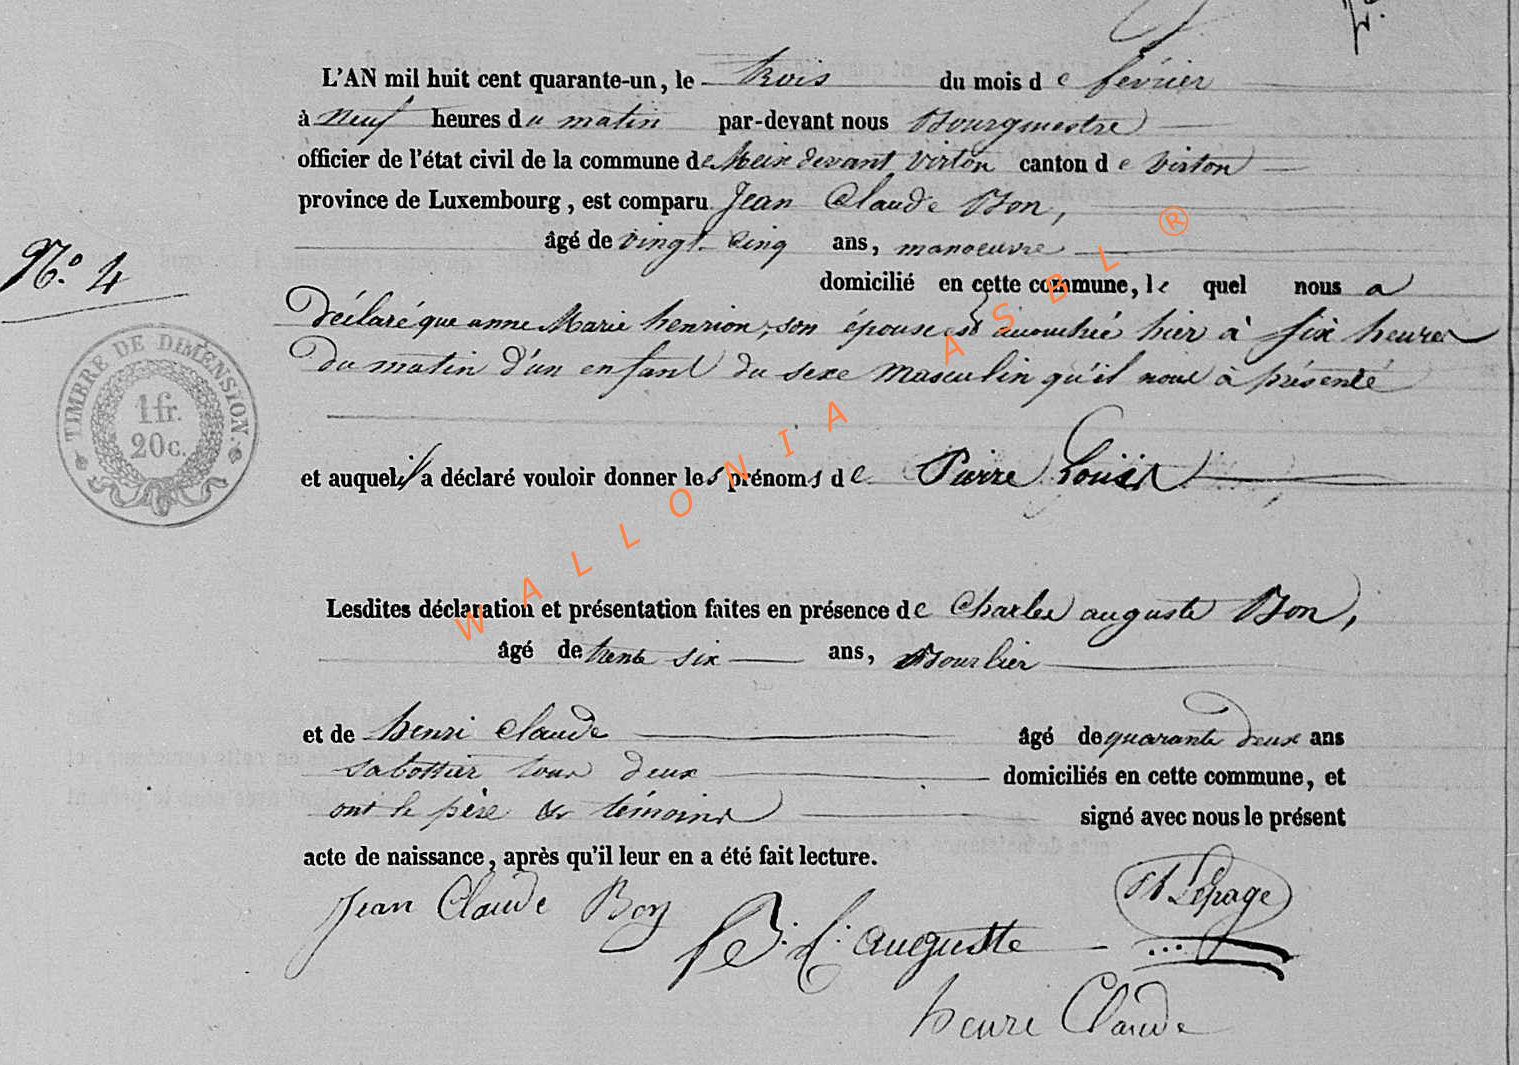 L'AN mil huit cent quarante-un, le trois du mois de février
à neuf heures du matin par-devant nous Bourgmestre
officier de l'état civil de la commune de Meix devant virton canton de virton
province de Luxembourg, est comparu Jean Claude Bon,
âgé de vingt cinq ans, manoeuvre
N.° 4
domicilié en cette commune, le quel nous a
déclaré que anne Marie henrion, son épouse est accouchée hier à six heures
du matin d'un enfant du sexe masculin qu'il nous à présenté
TIMBRE DE DIMENSION.
1 fr.
20 c.
et auquel il a déclaré vouloir donner les prénoms de Pierre Louis
Lesdites déclaration et présentation faites en présence de Charles auguste Bon,
âgé de trente six ans, Bourlier
et de henri Claude âgé de quarante deux ans
sabottier tous deux domiciliés en cette commune, et
ont le père & témoins signé avec nous le présent
acte de naissance, après qu'il leur en a été fait lecture.
Jean Claude Bon
B: C: auguste
Lepage
henri Claude
WALLONIA ASBL ®